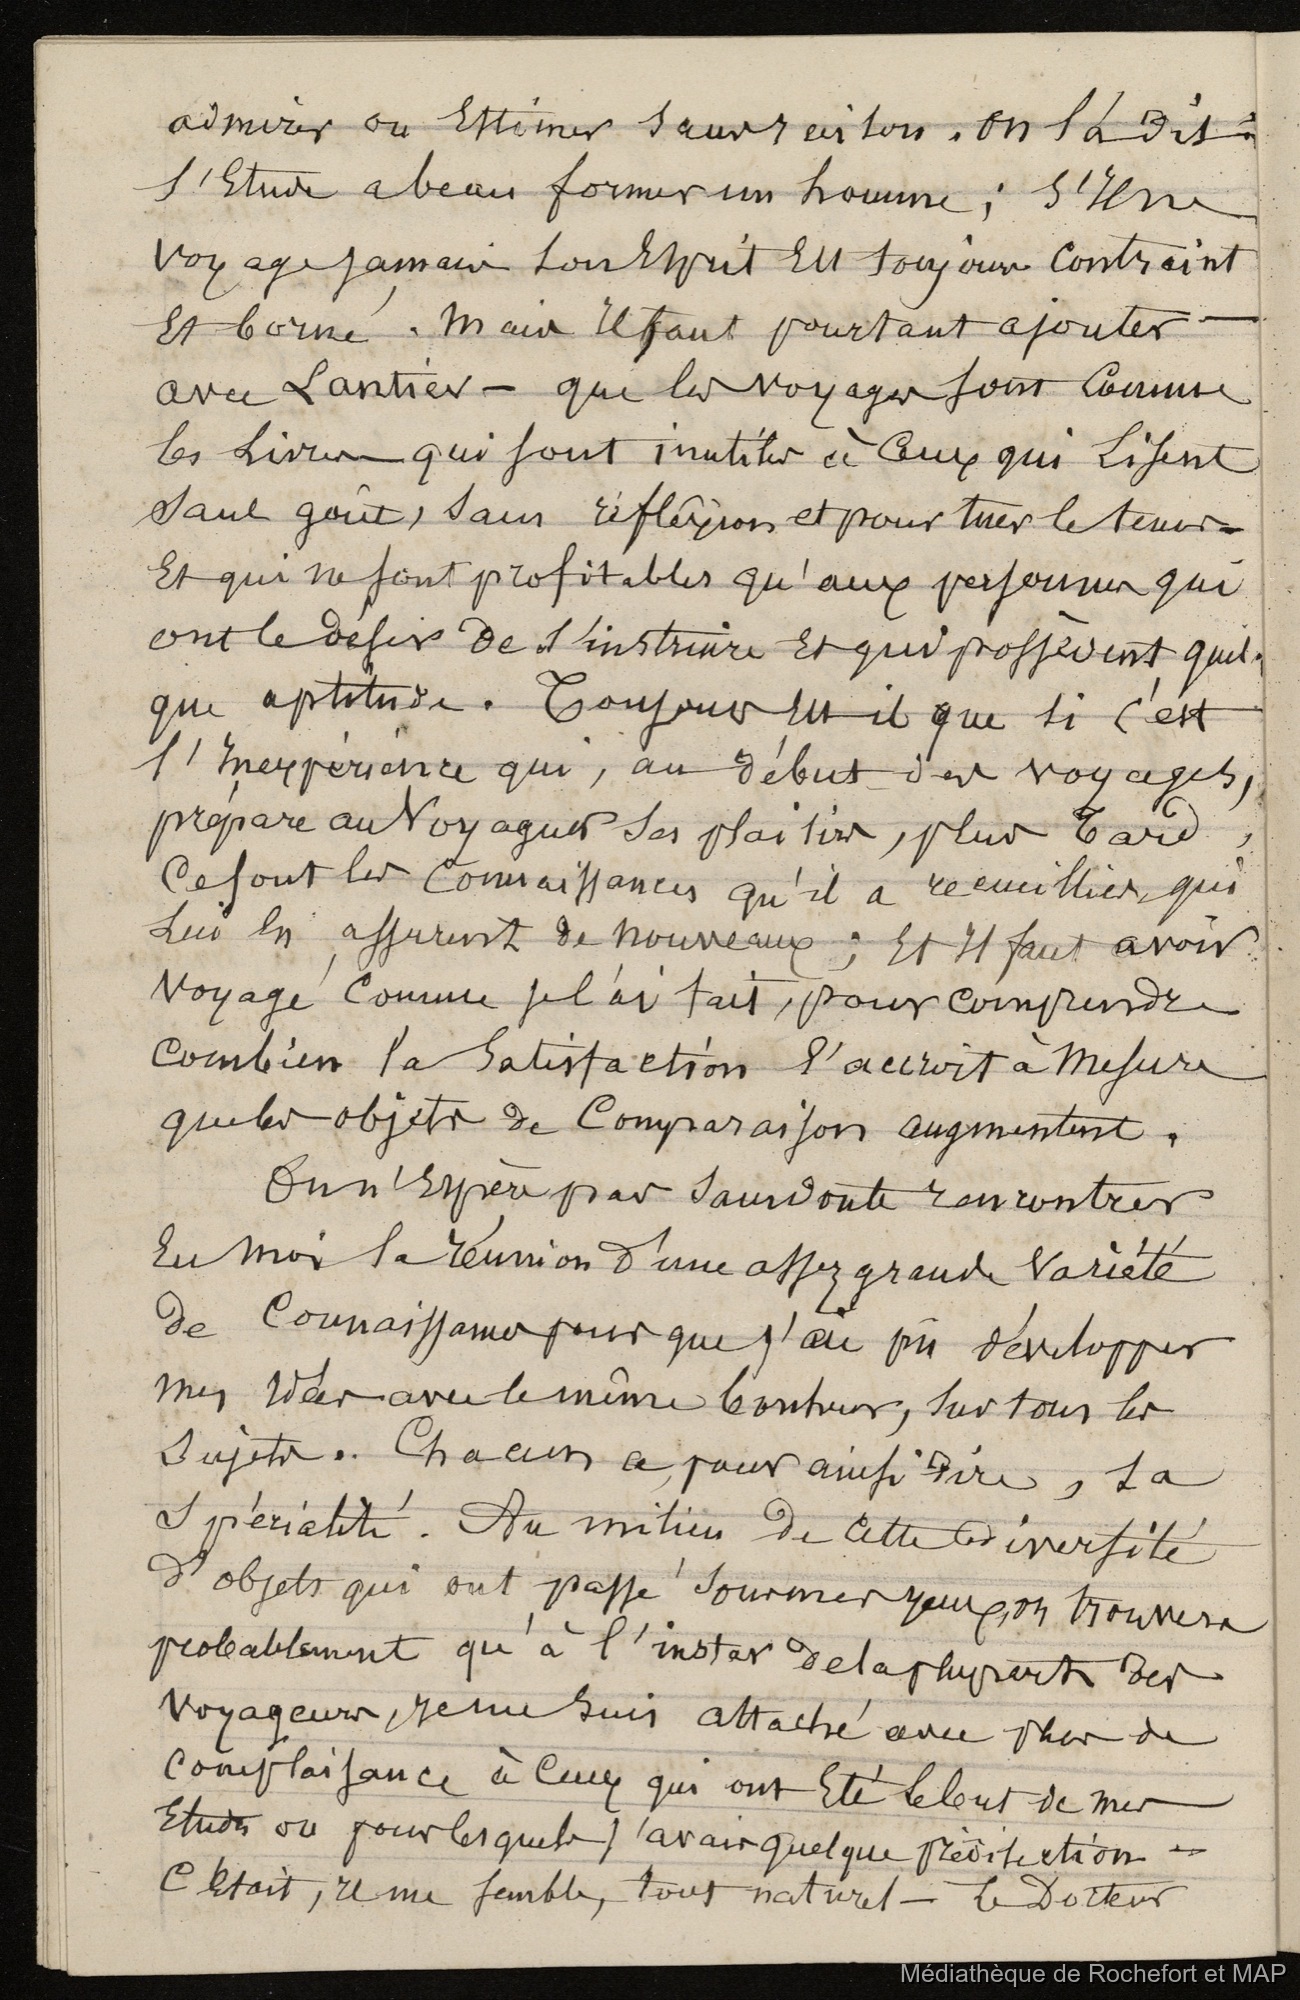 admirer ou Estimer sans raison. On l'a Dit:
l'Etude a beau former un homme; S'Il ne
voyage jamais son Esprit Est toujours contraint
Et borné. Mais Il faut pourtant ajouter —
avec Lantier — que les voyages sont Comme
les Livres qui sont inutiles à Ceux qui Lisent
sans goût, sans réflexion et pour tuer le tems —
Et qui ne sont profitables qu'aux personnes qui
ont le désir de s'instruire Et qui possèdent quel-
que aptitude. Toujours Est-il que si c'est
l'Inexpérience qui, au début des voyages,
prépare au Voyageur ses plaisirs, plus Tard,
Ce sont les Connaissances qu'il a recueillies, qui
Lui En assurent de nouveaux; Et Il faut avoir
voyagé Comme je l'ai fait, pour comprendre
combien la Satisfaction s'accroit à Mesure
que les objets de Comparaison augmentent.
On n'Espère pas sans doute rencontrer
En Moi la réunion d'une assez grande Variété
de Connaissances pour que j'aie pû développer
mes Idées avec le même bonheur, sur tous les
sujets. Chacun a, pour ainsi Dire, sa
spécialité. Au milieu De Cette diversité
d'objets qui ont passé sous mes yeux, on trouvera
probablement qu'à l'instar de la plupart Des
voyageurs, je me suis attaché avec plus de
complaisance à Ceux qui ont Eté le but de mes
Etudes ou pour lesquels j'avais quelque prédilection —
C'Etait, ce me semble, tout naturel — Le Docteur
Médiathèque de Rochefort et MAP